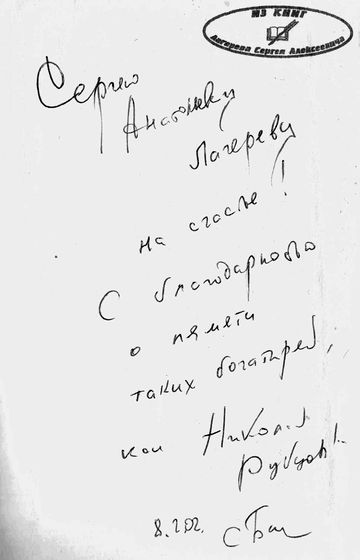 ИЗ КНИГ
Лагерева Сергея Алексеевича
Сергею
Анатольевичу
Лагереву
на счастье!
С благодарностью
о памяти
таких богатырей,
как Николай
Рубцов!
8.2.02.